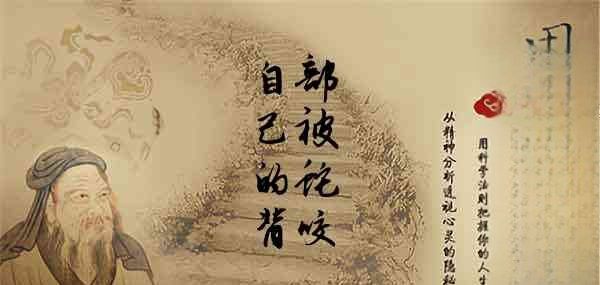 自己的背
部被蛇咬
用科学法则把握你的人生
从精神分析透视心灵的隐秘